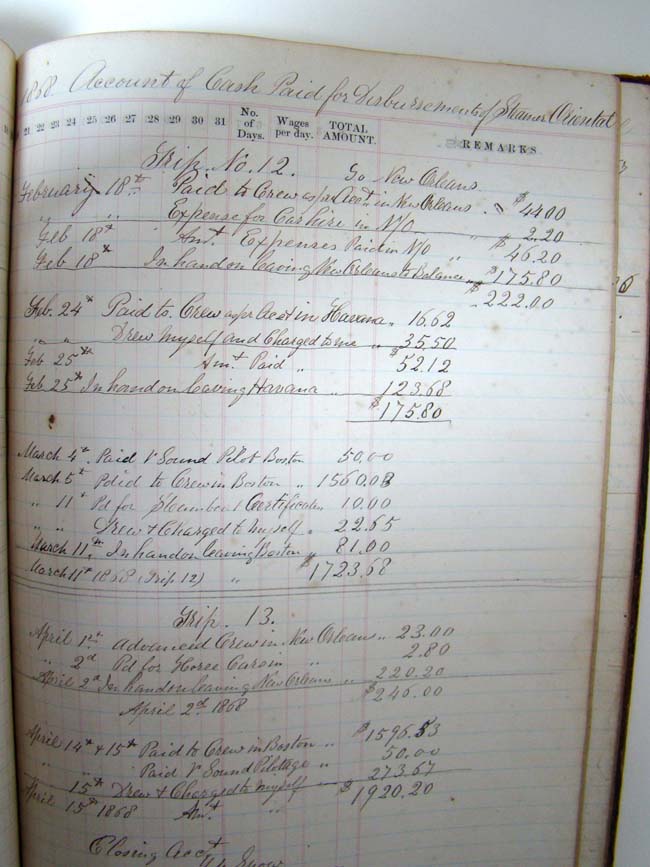 1868 Account of Cash Paid for Disbursements of Steamer Oriental
21 22 23 24 25 26 27 28 29 30 31 No. of Days. Wages per day. TOTAL AMOUNT. REMARKS
Trip No. 12. To New Orleans
February 18th Paid to Crew as pr Acct in New Orleans " $44.00
" " Expense for Car hire in N/O 2.20
Feb 18th Amt Expenses Paid in N/O " $46.20
Feb 18th In hand on leaving New Orleans to Balance " $175.80
$222.00
Feb. 24th Paid to Crew as pr Acct in Havana " 16.62
" " Drew myself and Charged to me " 35.50
Feb 25th Amt Paid " $52.12
Feb 25th In hand on leaving Havana " 123.68
$175.80
March 4th Paid V Sound Pilot Boston 50.00
March 5th Paid to Crew in Boston " 1560.03
" 11th Pd for Certificates 10.00
" " Drew & Charged to myself " 22.65
March 11th In hand on leaving Boston " 81.00
March 11th 1868 (Trip 12) " $1723.68
Trip. 13.
April 1st Advanced Crew in New Orleans " 23.00
" 2d Pd for Horse Cars in " 2.80
April 2d In hand on leaving New Orleans " 220.20
April 2d 1868 $246.00
April 14th & 15th Paid to Crew in Boston " $1596.53
" " Paid V Sound Pilotage " 50.00
" 15th Drew & Charged to myself 273.67
April 15th 1868 Amt " $1920.20
Closing Acct